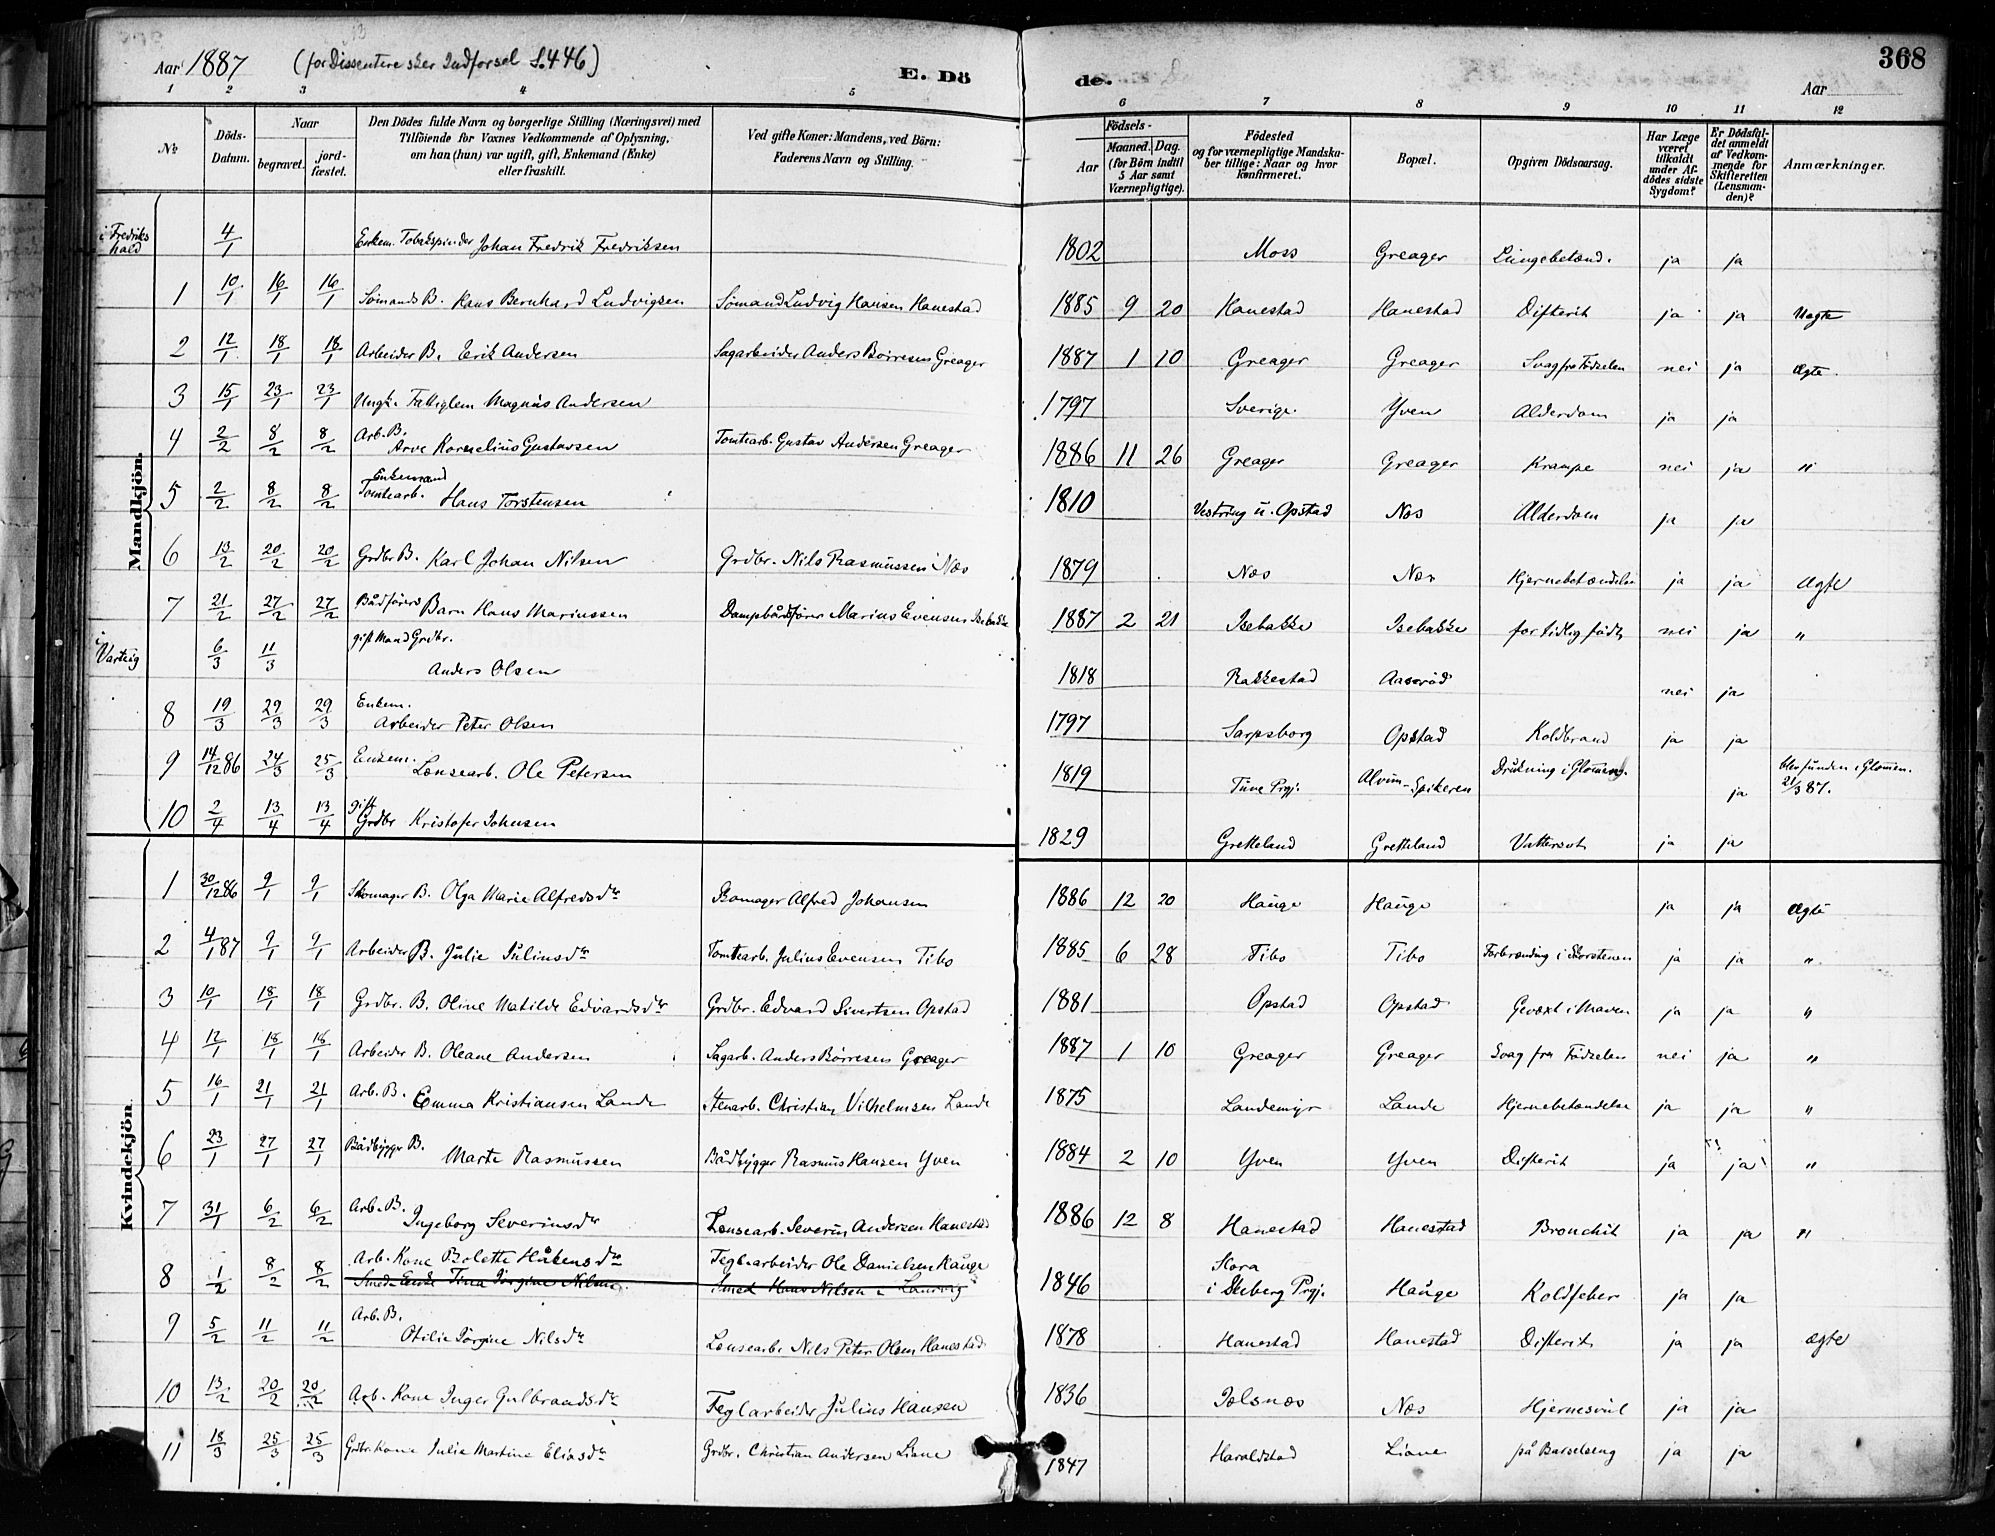 Aar 1887 (for Dissentere sker Indførsel S. 446) E. Dö de. 368
Aar
1 2 3 4 5 6 7 8 9 10 11 12
No Döds-Datum. Naar begravet. jord-fæstet. Den Dödes fulde Navn og borgerlige Stilling (Næringsvei) med Tilföiende for Voxnes Vedkommende af Oplysning, om han (hun) var ugift, gift, Enkemand (Enke) eller fraskilt. Ved gifte Koner: Mandens, ved Börn: Faderens Navn og Stilling. Födsels- Aar Maaned. Dag. (for Börn indtil 5 Aar samt Værnepligtige). Födested og for værnepligtige Mandskaber tillige: Naar og hvor konfirmeret. Bopæl. Opgiven Dödsaarsag. Har Læge været tilkaldt under Afdödes sidste Sygdom? Er Dödsfaldet anmeldt af Vedkommende for Skifteretten (Lensmanden)? Anmærkninger.
Mandkjön.
i Fredrikshald 4/1 Enkem. Tobakspinder Johan Fredrik Fredriksen 1802 Moss Greager Lungebetænd. ja ja
1 10/1 16/1 16/1 Sømands B. Hans Bernhard Ludvigsen Sømand Ludvig Hansen Hanestad 1885 9 20 Hanestad Hanestad Difterit ja ja Uægte
2 12/1 18/1 18/1 Arbeider B. Erik Andersen Sagarbeider Anders Børresen Greager 1887 1 10 Greager Greager Svag fra Fødselen nei ja ægte
3 15/1 23/1 23/1 Ungk. Fattiglem Magnus Andersen 1797 Sverige Yven Alderdom ja ja
4 2/2 8/2 8/2 Arb. B. Arve Kornelius Gustavsen Tomtearb. Gustav Andersen Greager 1886 11 26 Greager Greager Krampe nei ja "
5 2/2 8/2 8/2 Enkemand Tomtearb. Hans Torstensen 1810 Vestreng u. Opstad Næs Alderdom ja ja
6 13/2 20/2 20/2 Grdbr. B. Karl Johan Nilsen Grdbr. Nils Rasmussen Næs 1879 Næs Næs Hjernebetændelse ja ja Ægte
7 21/2 27/2 27/2 Bådførers Barn Hans Mariussen Dampbådfører Marius Evensen Isebakke 1887 2 21 Isebakke Isebakke for tidlig født nei ja "
i Varteig 6/3 11/3 gift Mand Grdbr. Anders Olsen 1818 Rakkestad Aaserød nei ja
8 19/3 29/3 29/3 Enkem. Arbeider Peter Olsen 1797 Sarpsborg Opstad Koldbrand ja ja
9 14/12 86 24/3 25/3 Enkem. Lænsearb. Ole Petersen 1819 Tune Prgj. Alvim-Spikeren Drukning i Glommen. ja blev funden i Glommen. 21/3 87.
10 2/4 13/4 13/4 gift Grdbr Kristofer Johnsen 1829 Gretteland Gretteland Vattersot ja ja
Kvindekjön.
1 30/12 86 9/1 9/1 Skomager B. Olga Marie Alfredsdtr Skomager Alfred Johansen 1886 12 20 Hauge Hauge ja ja ægte
2 4/1 87 9/1 9/1 Arbeider B. Julie Juliusdtr Tomtearb. Julius Evensen Tibo 1885 6 28 Tibo Tibo Forbrænding i Skorstenen ja ja "
3 10/1 18/1 18/1 Grdbr. B. Oline Matilde Edvardsdtr Grdbr. Edvard Sivertsen Opstad 1881 Opstad Opstad Gevæxt i Maven ja ja "
4 12/1 18/1 18/1 Arbeider B. Oleane Andersen Sagarb. Anders Børresen Greager 1887 1 10 Greager Greager Svag fra Fødselen nei ja "
5 16/1 21/1 21/1 Arb. B. Emma Kristiansen Lande Stenarb. Christian Vilhelmsen Lande 1875 Landemyr Lande Hjernebetændelse ja ja "
6 23/1 27/1 27/1 Bådbygger B. Marte Rasmussen Bådbygger Rasmus Hansen Yven 1884 2 10 Yven Yven Difterit ja ja "
7 31/1 6/2 6/2 Arb. B. Ingeborg Severinsdtr Lænsearb. Severin Andersen Hanestad 1886 12 8 Hanestad Hanestad Bronchit ja ja "
8 1/2 8/2 8/2 Arb. Kone Bolette Håkensdtr Smed Enke Tina Jørgine Nilsen Teglarbeider Ole Danielsen Hauge Smed Hans Nilsen i Landvig 1846 Skora i Skiberg Prgj. Hauge Koldfeber ja ja
9 5/2 11/2 11/2 Arb. B. Otilie Jørgine Nilsdtr Lænsearb. Nils Peter Olsen Hanestad 1878 Hanestad Hanestad Difterit ja ja ægte
10 13/2 20/2 20/2 Arb. Kone Inger Gulbrandsdtr Teglarbeider Julius Hansen 1836 Næs Hjernesvul ja ja
11 18/3 25/3 25/3 Grdbr. Kone Julie Martine Eliasdtr Grdbr. Christian Andersen Liane 1847 Haraldstad Liane på Barselseng ja ja